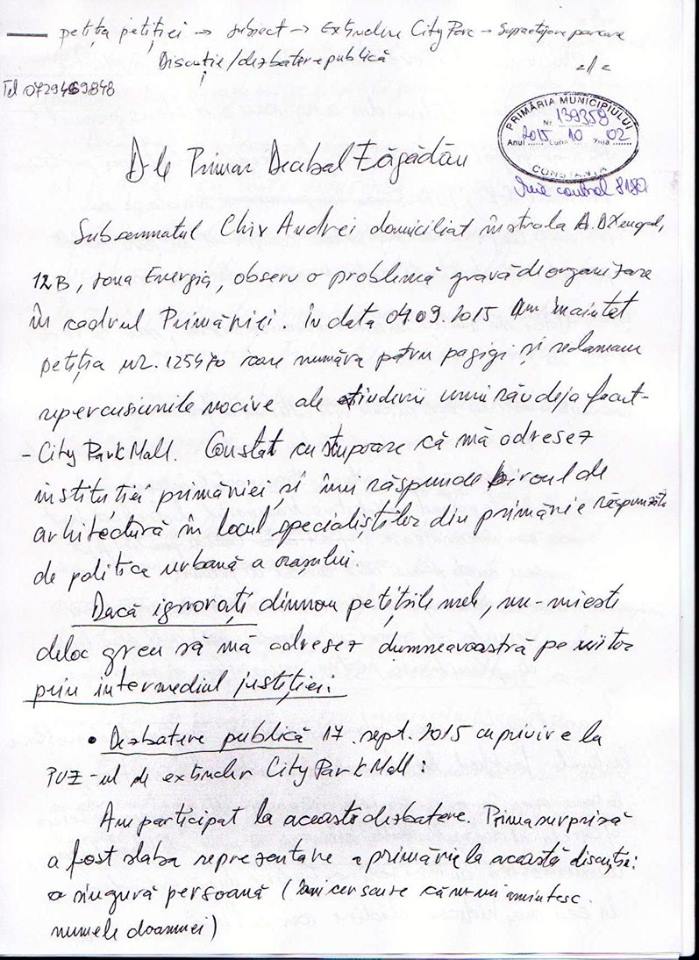 petiția petiției → subiect → Extindere City Parc → Supraetajare parcare
Discuție/dezbatere publică
Tel 0729469848
PRIMĂRIA MUNICIPIULUI
Nr. 139358
2015 10 02
Anul Luna Ziua
CONSTANȚA
D-le Primar Decebal Făgădău
Subsemnatul Chiv Andrei domiciliat în strada A.D Xenopol,
12B, zona Energia, observ o problemă gravă de organizare
în cadrul Primăriei. În data 04.09.2015 Am înaintat
petiția nr. 125470 care număra patru pagigi și reclamam
repercusiunile nocive ale extinderii unui rău deja facut-
- City Park Mall. Constat cu stupoare că mă adresez
institutiei primăriei și îmi răspunde biroul de
arhitectură în locul specialiștilor din primărie răspunzători
de politica urbană a orașului.
Dacă ignorați dinnou petițiile mele, nu-mi este
deloc greu să mă adresez dumneavoastră pe viitor
prin intermediul justiției.
• Dezbatere publică 17. sept. 2015 cu privire la
PUZ-ul de extindere City Park Mall:
Am participat la aceasta dezbatere. Prima surpriză
a fost slaba reprezentare a primăriei la această discuție:
o singură persoană (îmi cer scuze că nu-mi amintesc
numele doamnei)